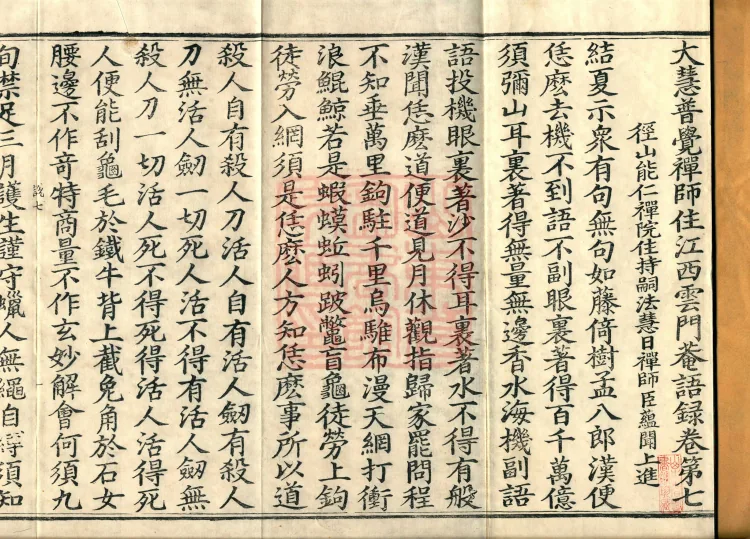 大慧普覺禪師住江西雲門菴語録卷第七
徑山能仁禪院住持嗣法慧日禪師臣蘊聞上進
結夏示衆有句無句如藤倚樹孟八郎漢便
恁麽去機不到語不副眼裏著得百千萬億
須彌山耳裏著得無量無邊香水海機副語
語投機眼裏著沙不得耳裏著水不得有般
漢聞恁麽道便道見月休觀指歸家罷問程
不知垂萬里鉤駐千里烏騅布漫天網打衝
浪鯤鯨若是蝦蟆蚯蚓跛鼈盲龜徒勞上鉤
徒勞入網須是恁麽人方知恁麽事所以道
殺人自有殺人刀活人自有活人劒有殺人
刀無活人劒一切死人活不得有活人劒無
殺人刀一切活人死不得死得活人活得死
人便能刮龜毛於鐵牛背上截兔角於石女
腰邊不作奇特商量不作玄妙解會何須九
旬禁足三月護生謹守蠟人無繩自縛須知